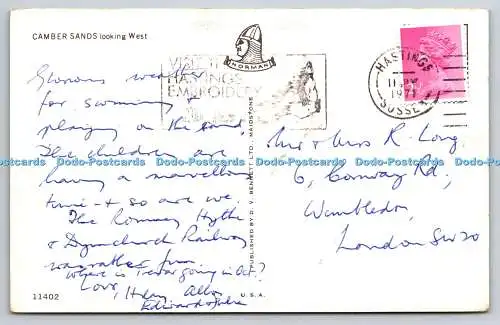 CAMBER SANDS looking West
NORMAN
VISIT THE
HASTINGS
EMBROIDERY
HASTINGS
1971
SUSSEX
Glorious weather
for swimming &
playing on the sand.
The children are
having a marvellous
time - & so are we.
The Romney Hythe
& Dymchurch Railway
was rather fun.
Where is Trevor going in Oct?
Love,
Edward & Julia
Mr & Mrs R. Long,
6, Conway Rd,
Wimbledon,
London SW20
PUBLISHED BY D. V. BENNETT LTD. MAIDSTONE
11402
U.S.A.
Dodo-Postcards Dodo-Postcards Dodo-Postcards Dodo-Postcards Dodo-Postcards Dodo-Postcards